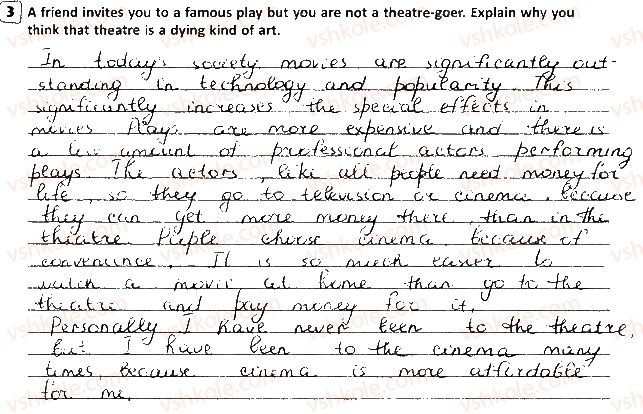 3 A friend invites you to a famous play but you are not a theatre-goer. Explain why you
think that theatre is a dying kind of art.
In today's society movies are significantly out-
standing in technology and popularity. This
significantly increases the special effects in
movies. Plays are more expensive and there is
a low amount of professional actors performing
plays. The actors, like all people need money for
life, so they go to television or cinema, because
they can get more money there, than in the
theatre. People choose cinema because of
convenience. It is so much easier to
watch a movie at home than go to the
theatre and pay money for it.
Personally I have never been to the theatre,
but I have been to the cinema many
times, because cinema is more affordable
for me.